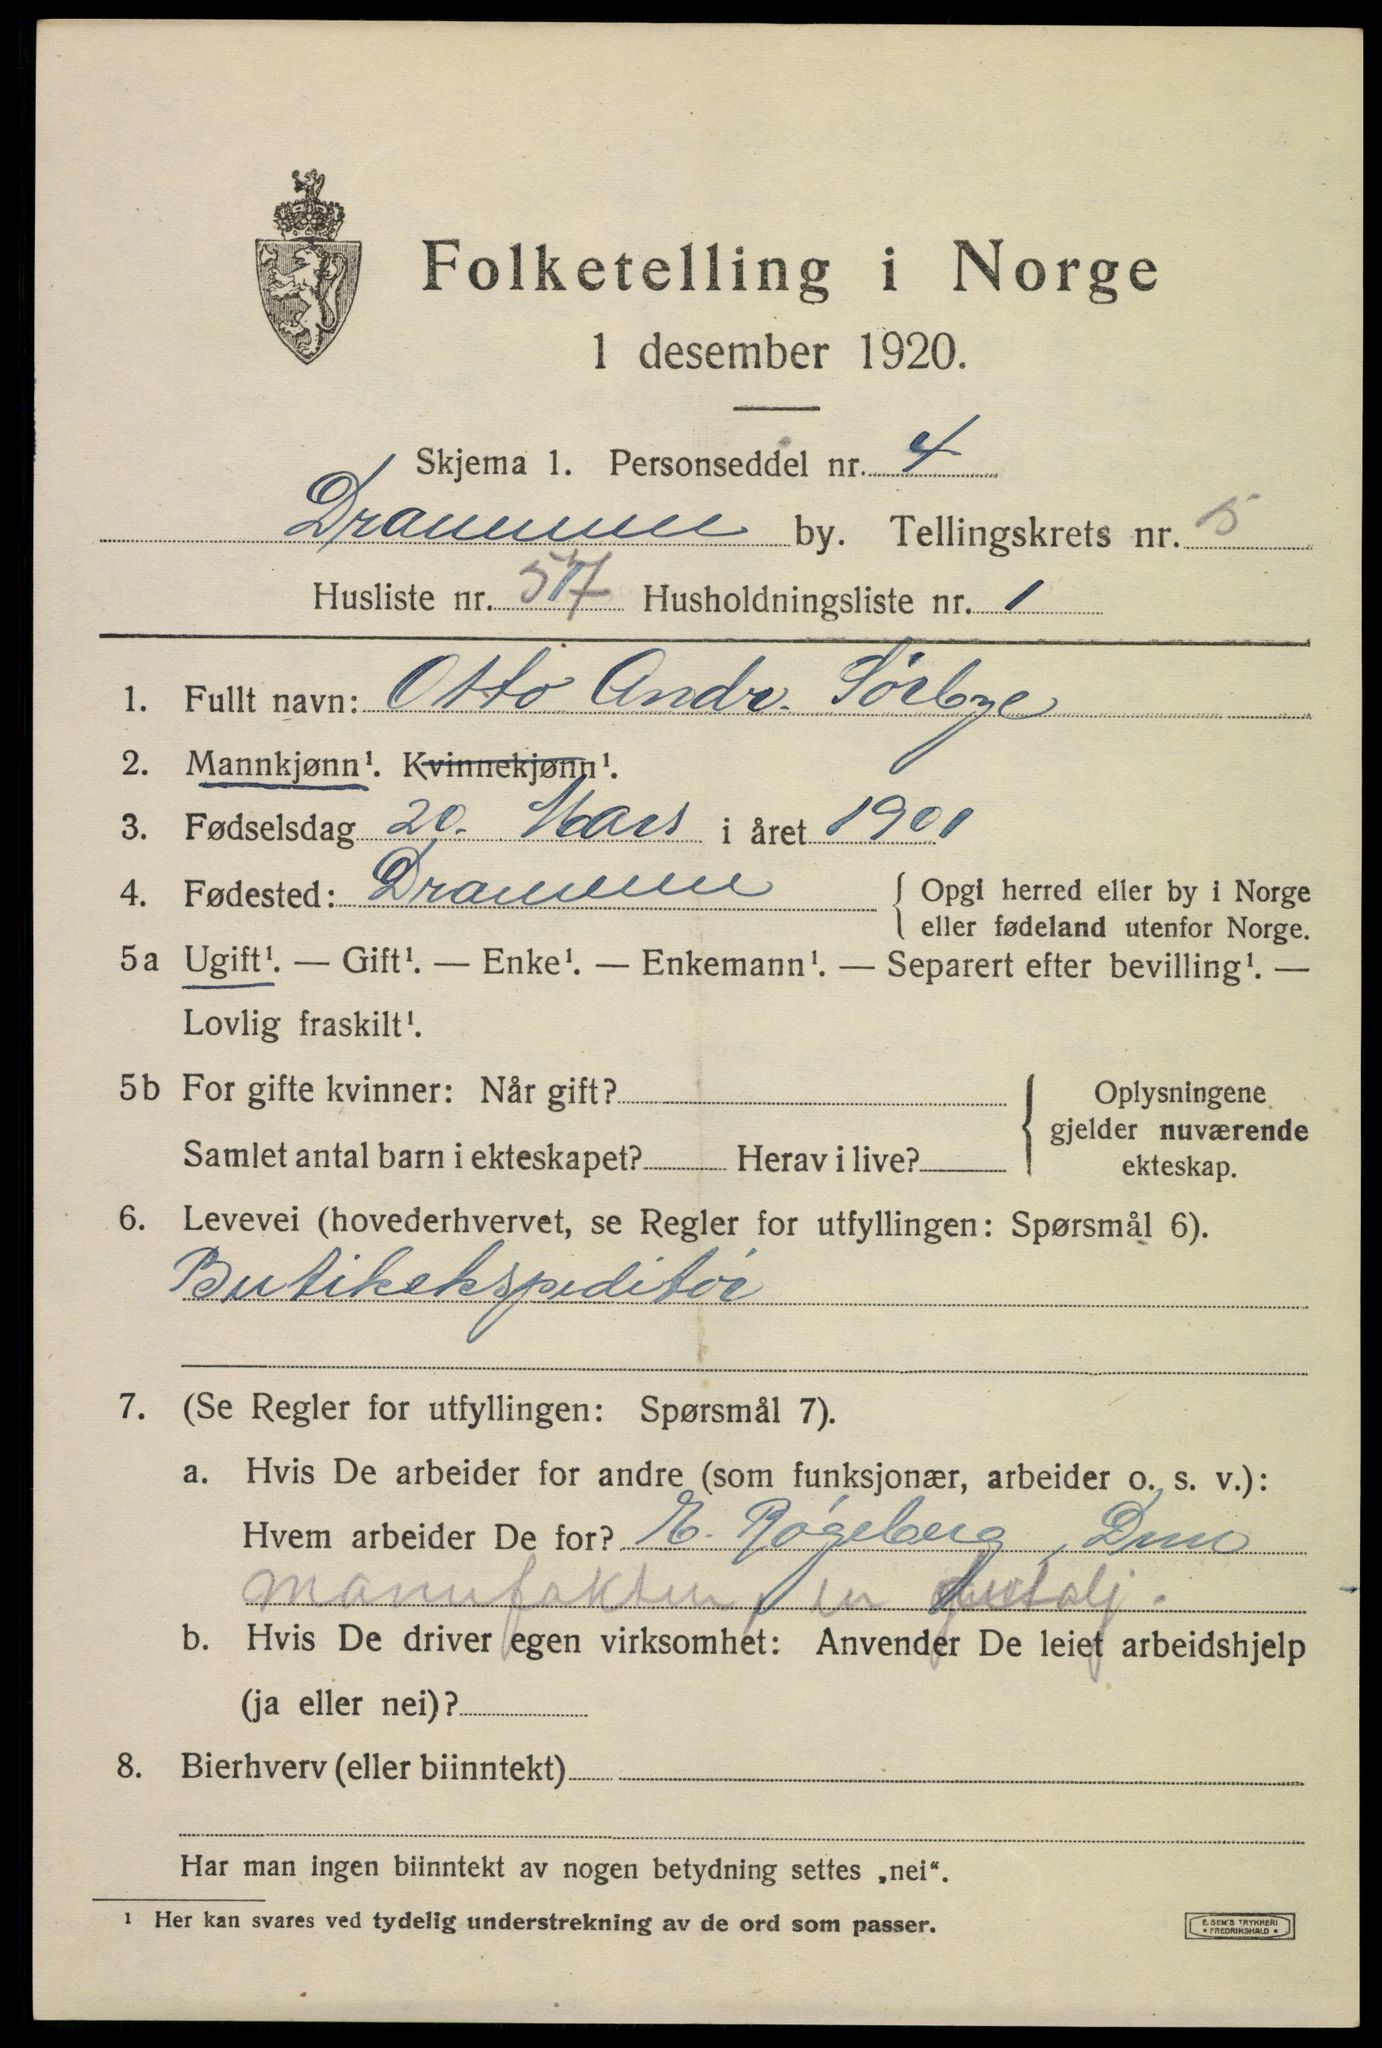 Folketelling i Norge
1 desember 1920.
Skjema 1. Personseddel nr. 4
Drammen by. Tellingskrets nr. 5
Husliste nr. 57 Husholdningsliste nr. 1
1. Fullt navn: Otto Andr. Sörbye
2. Mannkjønn¹. Kvinnekjønn¹.
3. Fødselsdag 20. Mars i året 1901
4. Fødested: Drammen { Opgi herred eller by i Norge
eller fødeland utenfor Norge.
5a Ugift¹. — Gift¹. — Enke¹. — Enkemann¹. — Separert efter bevilling¹. —
Lovlig fraskilt¹.
5b For gifte kvinner: Når gift? { Oplysningene
gjelder nuværende
Samlet antal barn i ekteskapet? Herav i live?
ekteskap.
6. Levevei (hovederhvervet, se Regler for utfyllingen: Spørsmål 6).
Butikekspeditör
7. (Se Regler for utfyllingen: Spørsmål 7).
a. Hvis De arbeider for andre (som funksjonær, arbeider o. s. v.):
Hvem arbeider De for? E. Røgeberg, Dmn
manufaktur, en detalj.
b. Hvis De driver egen virksomhet: Anvender De leiet arbeidshjelp
(ja eller nei)?
8. Bierhverv (eller biinntekt)
Har man ingen biinntekt av nogen betydning settes „nei“.
¹ Her kan svares ved tydelig understrekning av de ord som passer.
E. SEM'S TRYKKERI
• FREDRIKSHALD •